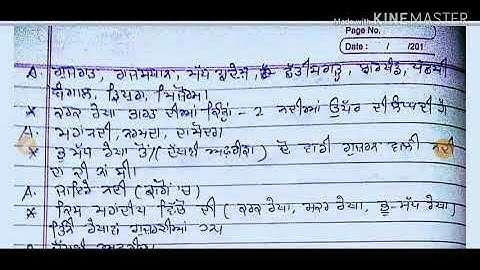 Made with KINEMASTER
Page No.
Date : / /201
A. ਗੁਜਰਾਤ, ਰਾਜਸਥਾਨ, ਮੱਧ ਪ੍ਰਦੇਸ਼, ਛੱਤੀਸਗੜ੍ਹ, ਝਾਰਖੰਡ, ਪੱਛਮੀ
ਬੰਗਾਲ, ਤ੍ਰਿਪੁਰਾ, ਮਿਜ਼ੋਰਮ।
* ਕਰਕ ਰੇਖਾ ਭਾਰਤ ਦੀਆਂ ਕਿਹੜੀਆਂ - 2 ਨਦੀਆਂ ਉੱਪਰ ਦੀ ਲੰਘਦੀ ਹੈ
A. ਮਾਹੀ ਨਦੀ, ਨਰਮਦਾ, ਦਾਮੋਦਰ।
* ਭੂ ਮੱਧ ਰੇਖਾ ਤੋਂ (ਦੱਖਣੀ ਅਫਰੀਕਾ) ਦੋ ਵਾਰੀ ਗੁਜਰਨ ਵਾਲੀ ਨਦੀ
ਦਾ ਕੀ ਨਾਂ ਸੀ।
A. ਜਾਇਰੇ ਨਦੀ (ਕਾਂਗੋ 'ਚ)
* ਕਿਸ ਮਹਾਂਦੀਪ ਵਿੱਚੋਂ ਦੀ (ਕਰਕ ਰੇਖਾ, ਮਕਰ ਰੇਖਾ, ਭੂ-ਮੱਧ ਰੇਖਾ)
ਤਿੰਨੇ ਰੇਖਾਵਾਂ ਗੁਜਰਦੀਆਂ ਹਨ।